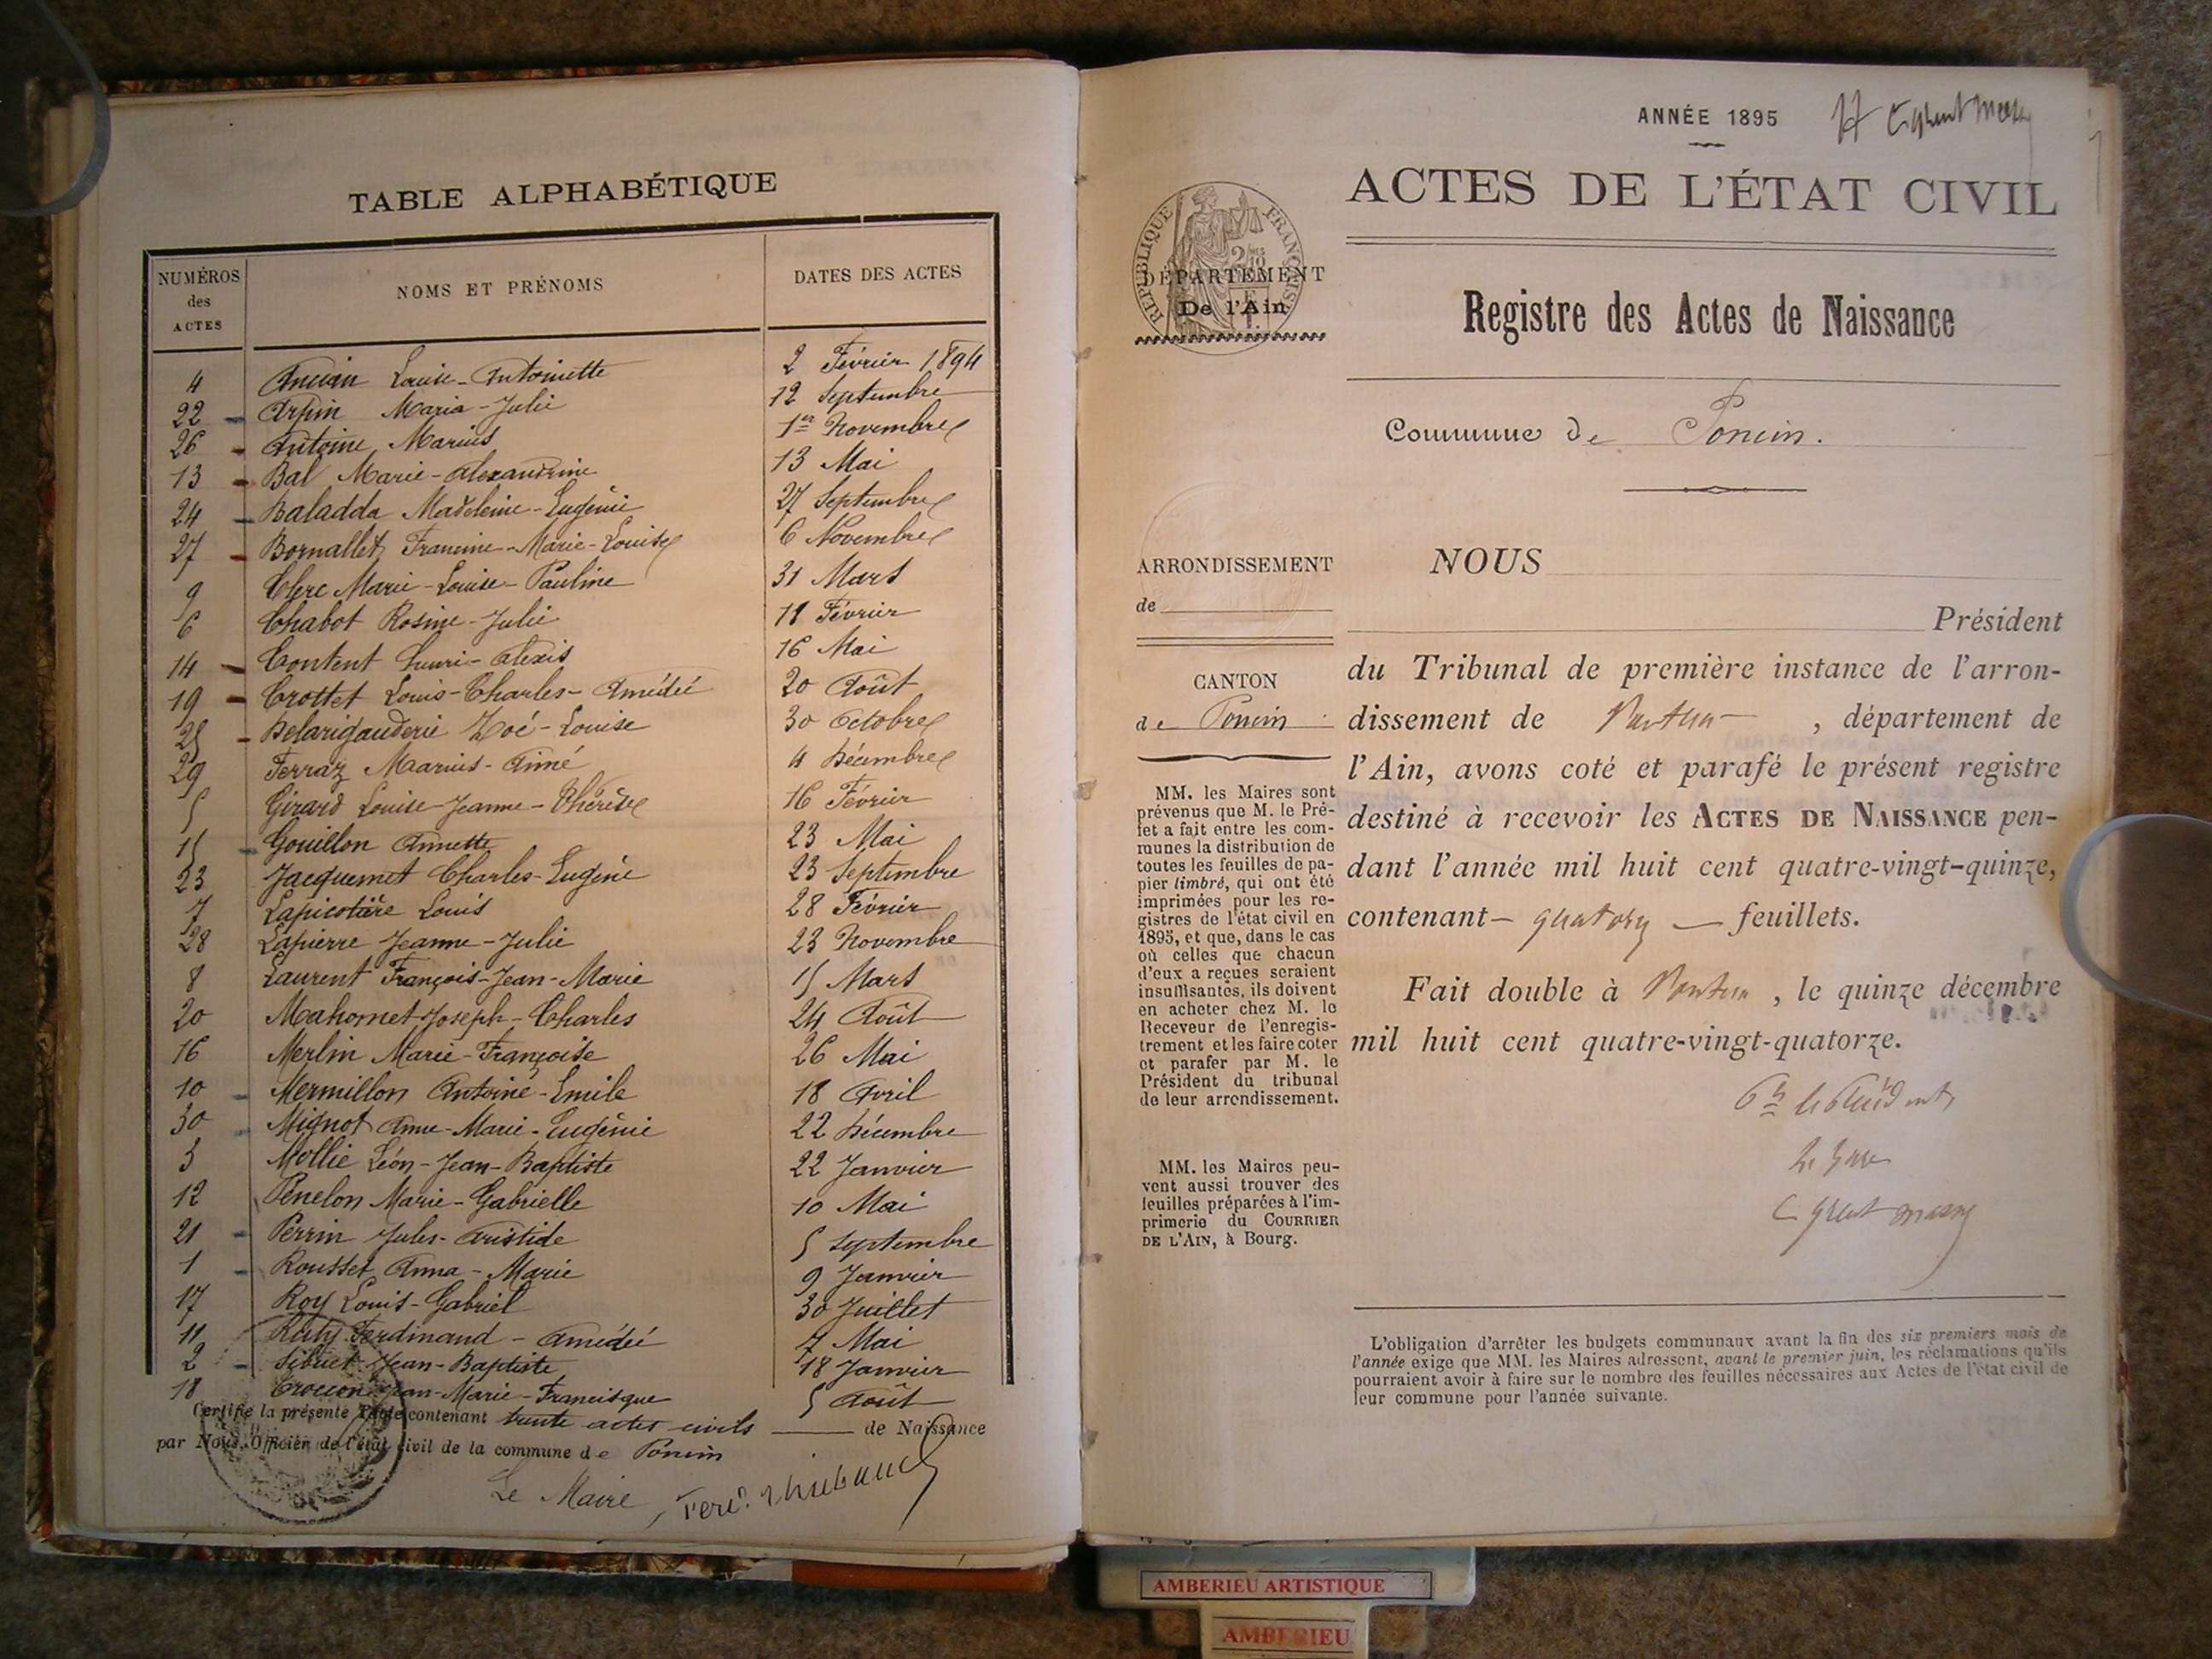 TABLE ALPHABÉTIQUE
NUMÉROS des ACTES
NOMS ET PRÉNOMS
DATES DES ACTES
4 Ancian Louise-Antoinette 2 Février 1894
22 Arpin Maria-Julie 12 Septembre
26 Antoine Marius 1er Novembre
13 Bal Marie-Alexandrine 13 Mai
24 Baladda Madeleine-Eugénie 27 Septembre
27 Bornallet Francine-Marie-Louise 6 Novembre
9 Clerc Marie-Louise-Pauline 31 Mars
6 Chabot Rosine-Julie 18 Février
14 Content Henri-Alexis 16 Mai
19 Crottet Louis-Charles-Amédée 20 Août
25 Delarigauderie Zoé-Louise 30 Octobre
29 Ferraz Marius-Aimé 4 Décembre
5 Girard Louise-Jeanne-Thérèse 16 Février
15 Gouillon Annette 23 Mai
23 Jacquemet Charles-Eugène 23 Septembre
7 Lapicotière Louis 28 Février
28 Lapierre Jeanne-Julie 23 Novembre
8 Laurent François-Jean-Marie 15 Mars
20 Mahomet Joseph-Charles 24 Août
16 Merlin Marie-Françoise 26 Mai
10 Mermillon Antoine-Emile 18 Avril
30 Mignot Anne-Marie-Eugénie 22 Décembre
3 Mollie Léon-Jean-Baptiste 22 Janvier
12 Pénelon Marie-Gabrielle 10 Mai
21 Perrin Jules-Aristide 5 Septembre
1 Rousset Anna-Marie 9 Janvier
17 Roy Louis-Gabriel 30 Juillet
11 Ruty Ferdinand-Amédée 7 Mai
2 Sibuet Jean-Baptiste 18 Janvier
18 Troccon Jean-Marie-Francisque 5 Août
Certifié la présente Table contenant trente actes civils de Naissance
par Nous, Officier de l'état civil de la commune de Poncin
Le Maire,
ANNÉE 1895
ACTES DE L'ÉTAT CIVIL
RÉPUBLIQUE FRANÇAISE
DÉPARTEMENT
De l'Ain
Registre des Actes de Naissance
Commune de Poncin.
ARRONDISSEMENT
de
CANTON
de Poncin
MM. les Maires sont
prévenus que M. le Pré-
fet a fait entre les com-
munes la distribution de
toutes les feuilles de pa-
pier timbré, qui ont été
imprimées pour les re-
gistres de l'état civil en
1895, et que, dans le cas
où celles que chacun
d'eux a reçues seraient
insuffisantes, ils doivent
en acheter chez M. le
Receveur de l'enregis-
trement et les faire coter
et parafer par M. le
Président du tribunal
de leur arrondissement.
MM. les Maires peu-
vent aussi trouver des
feuilles préparées à l'im-
primerie du COURRIER
DE L'AIN, à Bourg.
NOUS
Président
du Tribunal de première instance de l'arron-
dissement de Nantua, département de
l'Ain, avons coté et parafé le présent registre
destiné à recevoir les ACTES DE NAISSANCE pen-
dant l'année mil huit cent quatre-vingt-quinze,
contenant quatorze feuillets.
Fait double à Nantua, le quinze décembre
mil huit cent quatre-vingt-quatorze.
Pr le Président
Le Juge
L'obligation d'arrêter les budgets communaux avant la fin des six premiers mois de
l'année exige que MM. les Maires adressent, avant le premier juin, les réclamations qu'ils
pourraient avoir à faire sur le nombre des feuilles nécessaires aux Actes de l'état civil de
leur commune pour l'année suivante.
AMBERIEU ARTISTIQUE
AMBERIEU